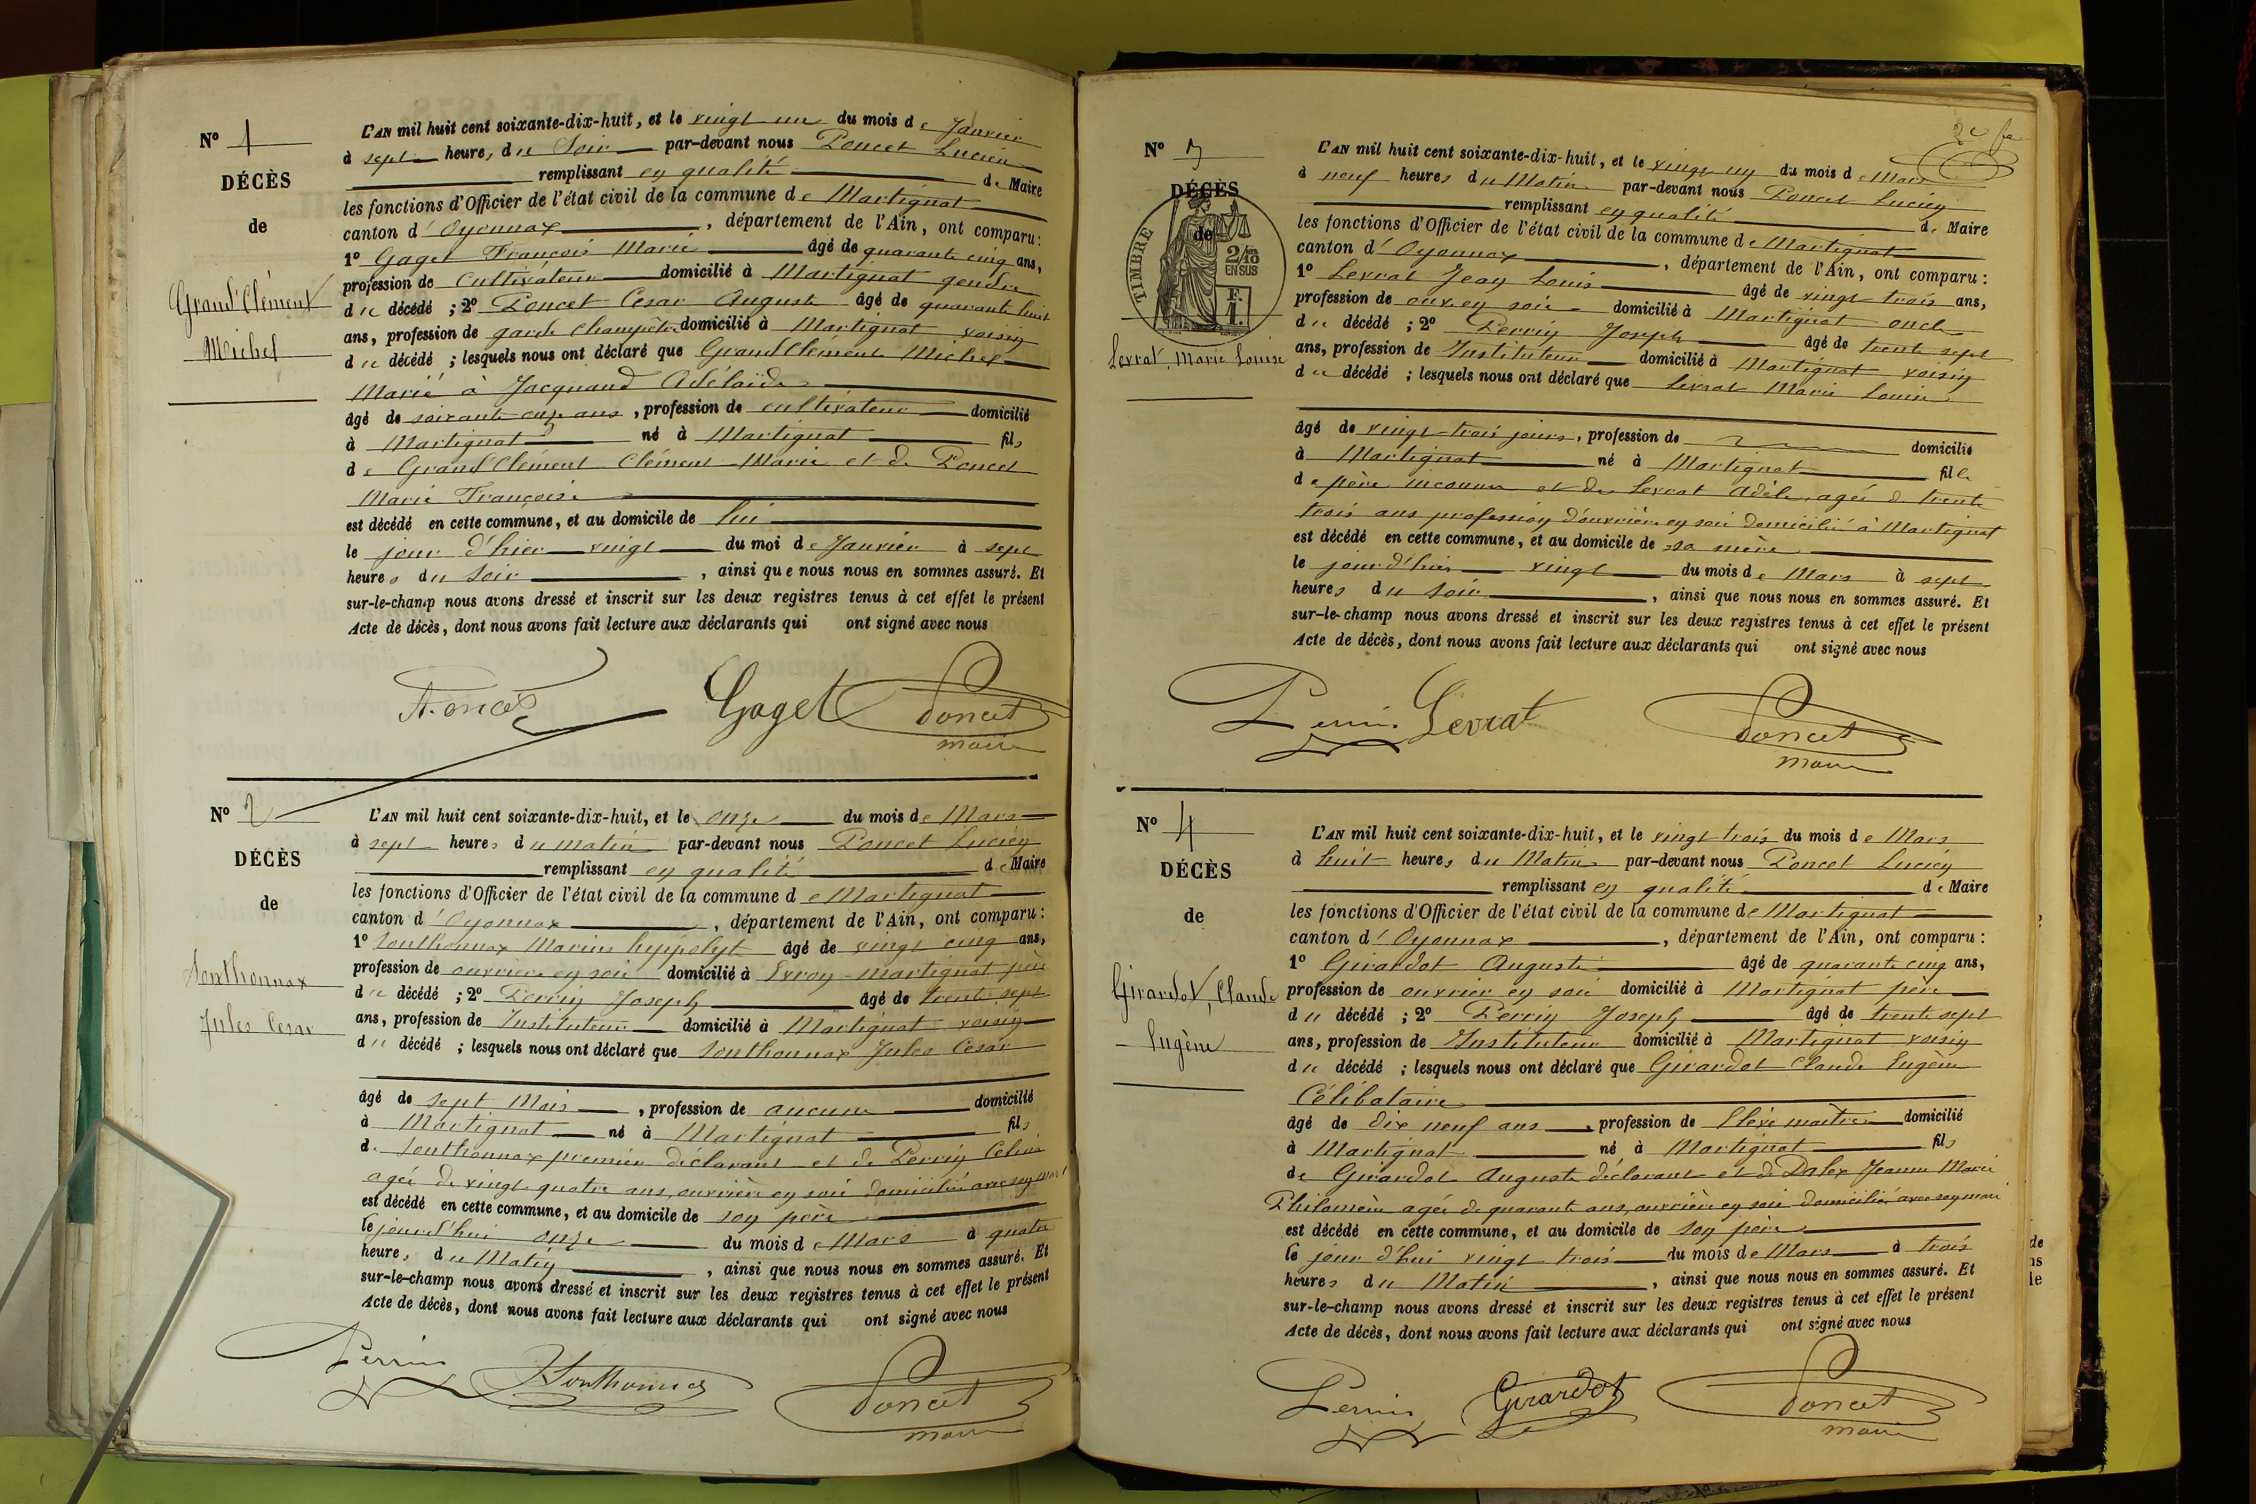 N° 1
DÉCÈS
de
Grand'Clément
Michel
L'AN mil huit cent soixante-dix-huit, et le vingt un du mois de Janvier
à sept heures du Soir par-devant nous Poncet Lucien
remplissant en qualité de Maire
les fonctions d'Officier de l'état civil de la commune de Martignat
canton d'Oyonnax, département de l'Ain, ont comparu:
1° Gaget François Marie âgé de quarante cinq ans,
profession de Cultivateur domicilié à Martignat gendre
du décédé ; 2° Poncet Cesar Auguste âgé de quarante huit
ans, profession de garde Champêtre domicilié à Martignat voisin
du décédé ; lesquels nous ont déclaré que Grand'Clément Michel
Marié à Jacquand Adélaïde
âgé de soixante onze ans, profession de cultivateur domicilié
à Martignat né à Martignat fils
de Grand'Clément Clément Marie et de Poncet
Marie Françoise
est décédé en cette commune, et au domicile de lui
le jour d'hier vingt du moi de Janvier à sept
heures du Soir, ainsi que nous nous en sommes assuré. Et
sur-le-champ nous avons dressé et inscrit sur les deux registres tenus à cet effet le présent
Acte de décès, dont nous avons fait lecture aux déclarants qui ont signé avec nous
A. Poncet Gaget Poncet
maire
N° 2
DÉCÈS
de
Sonthonnax
Jules Cesar
L'AN mil huit cent soixante-dix-huit, et le onze du mois de Mars
à sept heures du matin par-devant nous Poncet Lucien
remplissant en qualité de Maire
les fonctions d'Officier de l'état civil de la commune de Martignat
canton d'Oyonnax, département de l'Ain, ont comparu:
1° Sonthonnax Marius hyppolyt âgé de vingt cinq ans,
profession de ouvrier en soie domicilié à Evron-Martignat père
du décédé ; 2° Perrin Joseph âgé de trente sept
ans, profession de Instituteur domicilié à Martignat voisin
du décédé ; lesquels nous ont déclaré que Sonthonnax Jules Cesar
âgé de sept Mois, profession de aucune domicilié
à Martignat né à Martignat fils
de Sonthonnax premier déclarant et de Perrin Célina
agée de vingt quatre ans, ouvrière en soie domiciliée avec son mari
est décédé en cette commune, et au domicile de son père
le jourd'hui onze du mois de Mars à quatre
heures du Matin, ainsi que nous nous en sommes assuré. Et
sur-le-champ nous avons dressé et inscrit sur les deux registres tenus à cet effet le présent
Acte de décès, dont nous avons fait lecture aux déclarants qui ont signé avec nous
Perrin Sonthonnax Poncet
maire
2e
N° 3
DÉCÈS
de
TIMBRE
2/10
EN SUS
F.
1.
Levrat, Marie Louise
L'AN mil huit cent soixante-dix-huit, et le vingt un du mois de Mars
à neuf heures du Matin par-devant nous Poncet Lucien
remplissant en qualité de Maire
les fonctions d'Officier de l'état civil de la commune de Martignat
canton d'Oyonnax, département de l'Ain, ont comparu:
1° Levrat Jean Louis âgé de vingt trois ans,
profession de ouvr. en soie domicilié à Martignat oncle
du décédé ; 2° Perrin Joseph âgé de trente sept
ans, profession de Instituteur domicilié à Martignat voisin
du décédé ; lesquels nous ont déclaré que Levrat Marie Louise
âgé de vingt-trois jours, profession de domicilié
à Martignat né à Martignat fille
de père inconnu et de Levrat Adèle, agée de trente
trois ans profession d'ouvrière en soie domiciliée à Martignat
est décédé en cette commune, et au domicile de sa mère
le jour d'hier vingt du mois de Mars à sept
heures du soir, ainsi que nous nous en sommes assuré. Et
sur-le-champ nous avons dressé et inscrit sur les deux registres tenus à cet effet le présent
Acte de décès, dont nous avons fait lecture aux déclarants qui ont signé avec nous
Perrin Levrat Poncet
maire
N° 4
DÉCÈS
de
Girardot, Claude
Eugène
L'AN mil huit cent soixante-dix-huit, et le vingt trois du mois de Mars
à huit heures du Matin par-devant nous Poncet Lucien
remplissant en qualité de Maire
les fonctions d'Officier de l'état civil de la commune de Martignat
canton d'Oyonnax, département de l'Ain, ont comparu:
1° Girardot Auguste âgé de quarante cinq ans,
profession de ouvrier en soie domicilié à Martignat père
du décédé ; 2° Perrin Joseph âgé de trente sept
ans, profession de Instituteur domicilié à Martignat voisin
du décédé ; lesquels nous ont déclaré que Girardot Claude Eugène
Célibataire
âgé de dix neuf ans, profession de Elève maître domicilié
à Martignat né à Martignat fils
de Girardot Auguste déclarant et de Dalex Jeanne Marie
Philomène agée de quarante ans, ouvrière en soie domiciliée avec son mari
est décédé en cette commune, et au domicile de son père
le jour d'hui vingt trois du mois de Mars à trois
heures du Matin, ainsi que nous nous en sommes assuré. Et
sur-le-champ nous avons dressé et inscrit sur les deux registres tenus à cet effet le présent
Acte de décès, dont nous avons fait lecture aux déclarants qui ont signé avec nous
Perrin Girardot Poncet
maire